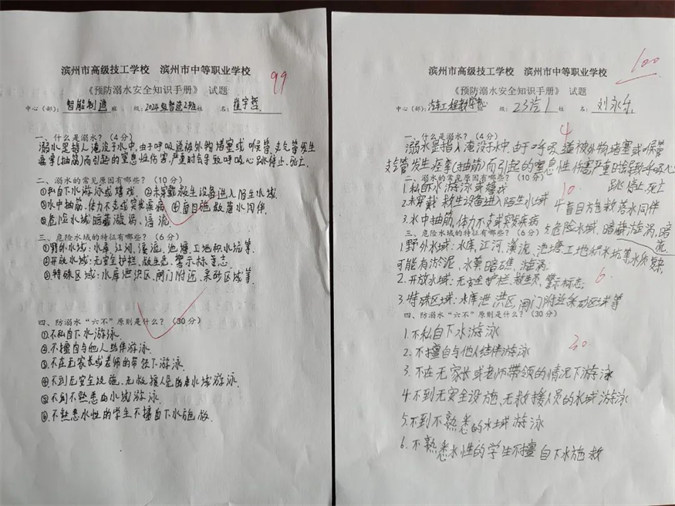 滨州市高级技工学校 滨州市中等职业学校
99
《预防溺水安全知识手册》 试题
中心(部): 智能制造 班 级: 姓名:
一、什么是溺水?(4分)
溺水是指人淹没于水中,由于呼吸道被外物堵塞或喉管、支气管发生
痉挛(抽筋)而引起的窒息性伤害,严重时会导致呼吸心跳停止、死亡.
二、溺水的常见原因有哪些?(10分)
①私自下水游泳或嬉戏 ②未穿戴救生设备进入陌生水域
③水中抽筋,体力不支或突发疾病 ④盲目施救落水同伴
⑤危险水域暗藏漩涡,
三、危险水域的特征有哪些?(6分)
①野外水域:水库、江河、溪流、池塘、工地积水坑等.
②开放水域:无安全护栏、救生员、警示标志
③特殊区域:水库泄洪区、闸门附近、采砂区域等
四、防溺水“六不”原则是什么?(30分)
①不私自下水游泳.
②不擅自与他人结伴游泳
③不在无家长或老师的带领下游泳.
④不到无安全设施、无救援人员的水域游泳
⑤不到不熟悉的水域游泳
⑥不熟悉水性的学生不擅自下水施救.
滨州市高级技工学校 滨州市中等职业学校
100
《预防溺水安全知识手册》 试题
中心(部): 班 级: 姓名: 刘永乐
一、什么是溺水?(4分)
4
溺水是指人淹没于水中,由于呼吸道被外物堵塞或喉管
支气管发生痉挛(抽筋)而引起的窒息性伤害严重时会导致呼吸心
跳停止死亡
二、溺水的常见原因有哪些?(10分)
1.私自下水游泳或嬉戏
10
2.未穿戴救生设备进入陌生水域
4盲目方施救落水同伴
3.水中抽筋,体力不支或突发疾病
5危险水域,暗藏漩涡,
三、危险水域的特征有哪些?(6分)
1.野外水域:水库、江河、溪流、池塘工地积水坑等水质
可能有淤泥、水草暗礁、漩涡
6
2.开放水域:无安全护栏、救生员、警示标志
3.特殊区域:水库泄洪区、闸门附近采砂区域等
四、防溺水“六不”原则是什么?(30分)
30
1.不私自下水游泳
2.不擅自与他人结伴游泳
3.不在无家长或老师带领的情况下游泳
4.不到无安全设施、无救援人员的水域游泳
5.不到不熟悉的水域游泳
6.不熟悉水性的学生不擅自下水施救